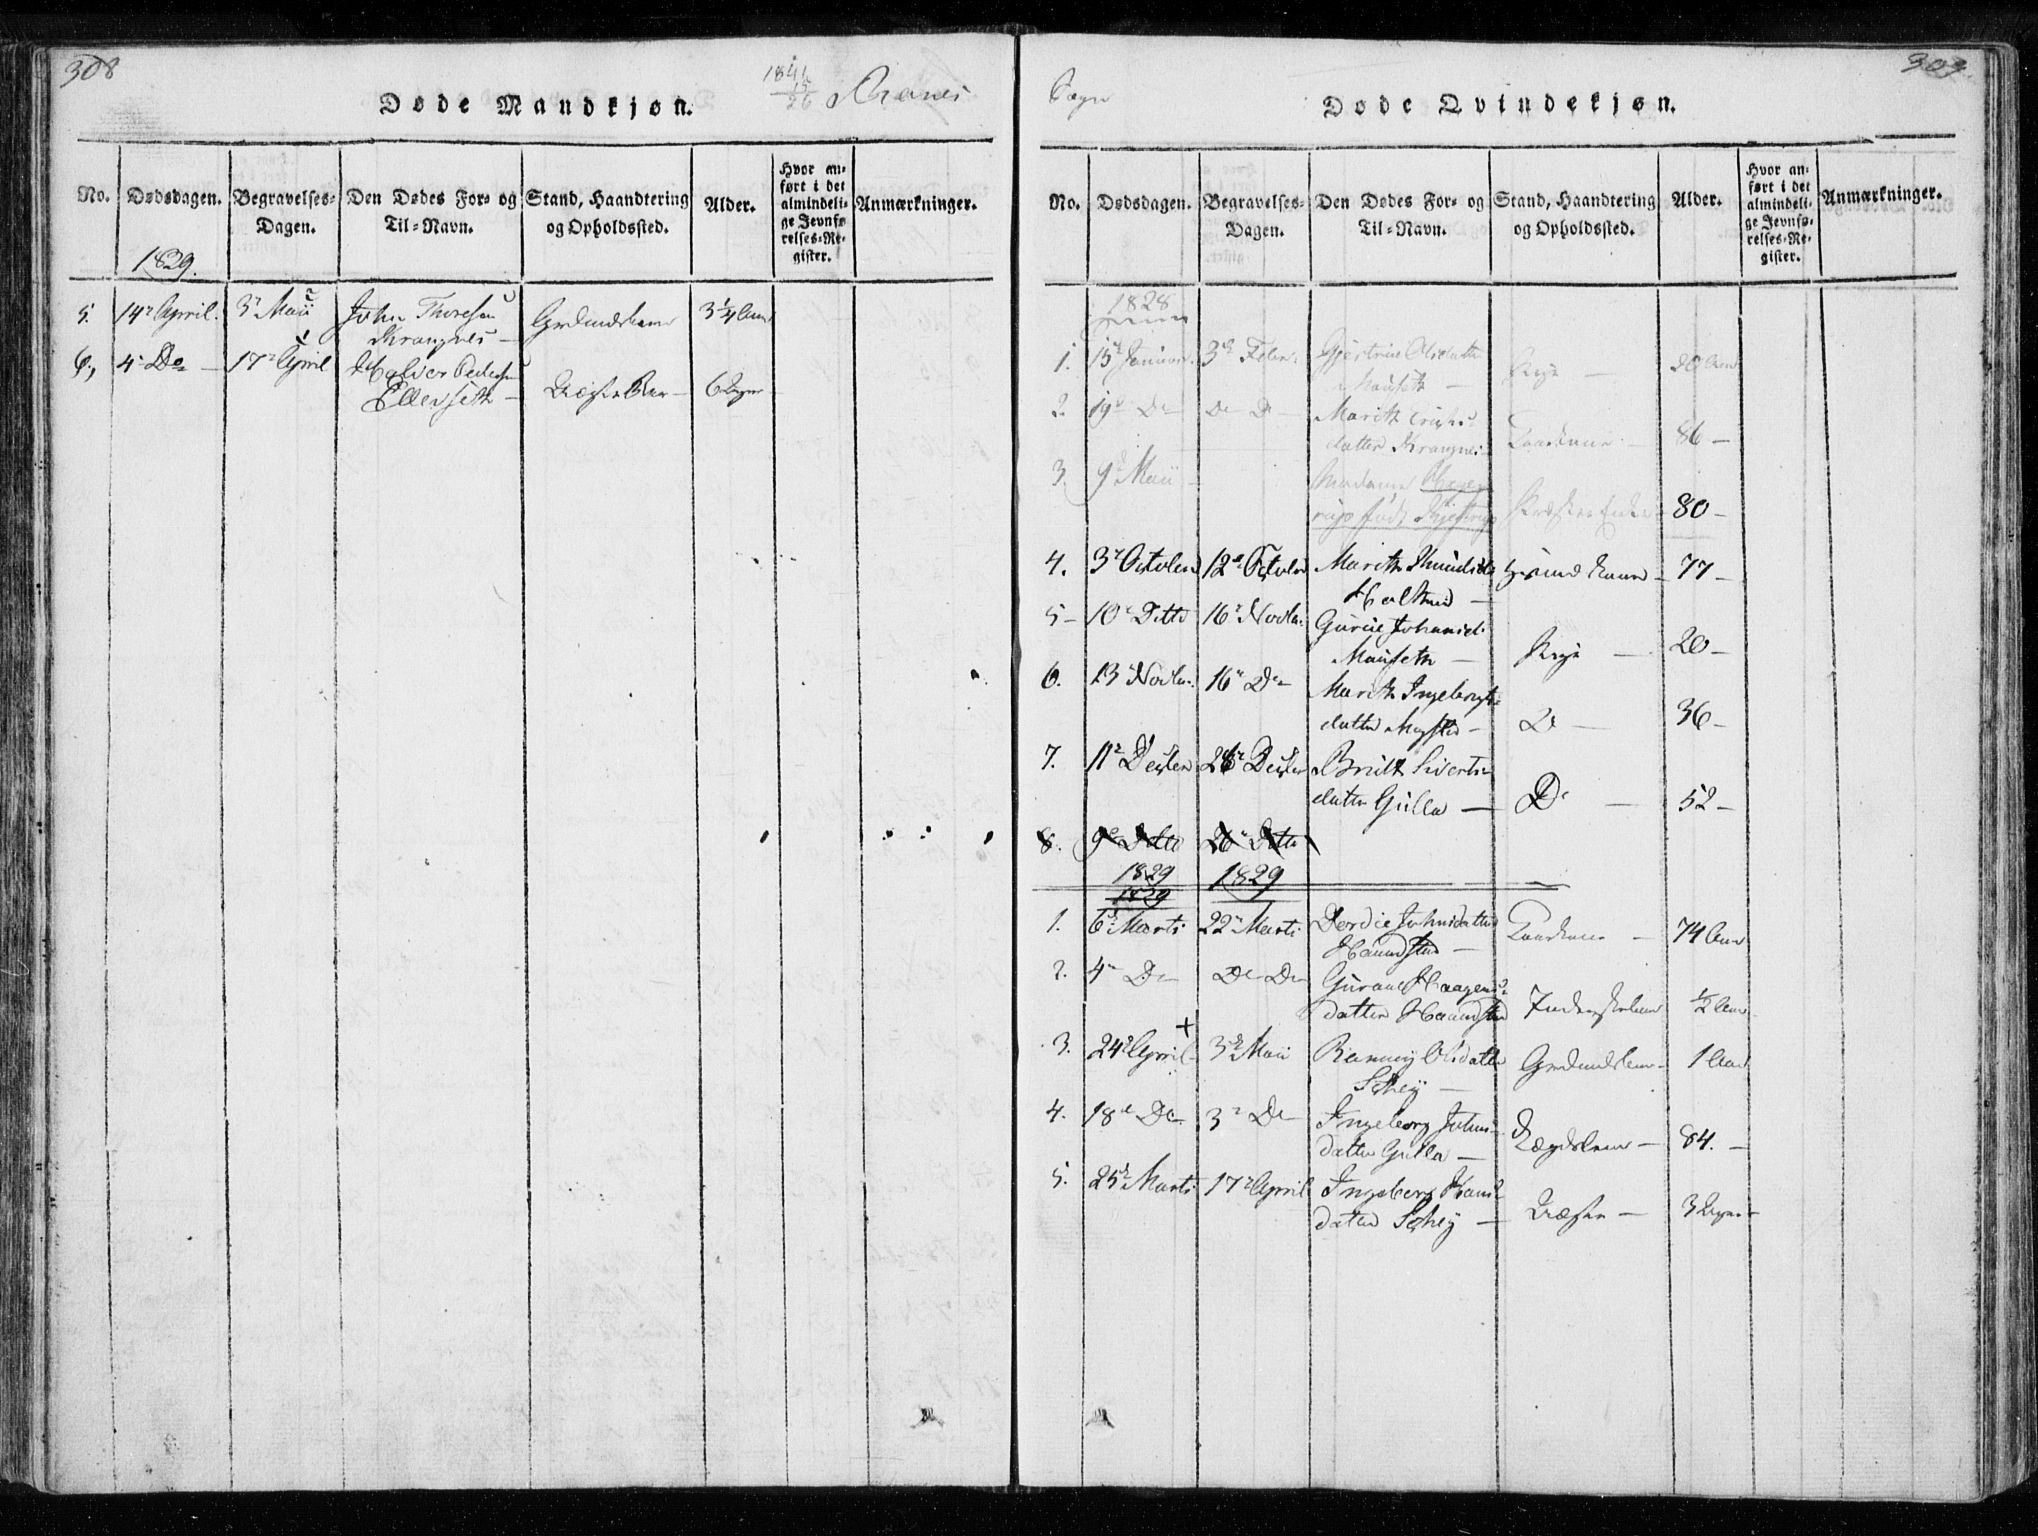 308
Døde Mandkjøn.
No.
Dødsdagen.
Begravelses-
Dagen.
Den Dødes For- og
Til-Navn.
Stand, Haandtering
og Opholdssted.
Alder.
Hvor an-
ført i det
almindeli-
ge Jevnfø-
relses-Re-
gister.
Anmærkninger.
1829.
5. 14de April. 3de Maii John Thoresen 3 1/4 Aar
Krangnes -
6, 4de Do - 17de April Halvor Pedersen
Ellevseth - 6 Dage
Sogn
Døde Qvindekjøn.
309.
No.
Dødsdagen.
Begravelses-
Dagen.
Den Dødes For- og
Til-Navn.
Stand, Haandtering
og Opholdssted.
Alder.
Hvor an-
ført i det
almindeli-
ge Jevnfø-
relses-Re-
gister.
Anmærkninger.
1828
1. 15de Januar. 3de Febr. Gjertrue Olsdatter
Mauseth - Pige - 20 Aar
2. 19de Do Do Do - Marith
datter Krangnes 86 -
3. 9de Maii Madame
født 80 -
4. 3de October 12de October Marith 77 -
5 - 10de Ditto 16de Novbr. Gurie Johnsd.
Mauseth - Pige - 20 -
6. 13 Novbr. 16de Do Marith Ingebrigts
datter Do - 36 -
7. 11de Decber 26de Decber Brith Siverts
datter Gulla - Do - 52 -
8. 9de Ditto 26de Ditto
1829 1829
1829
1. 6te Marts 22de Marts Dordie Johnsdatter
Haundstad - 74 Aar
2. 4de Do Do Do Gurane Haagens
datter Haundstad 1/2 Aar
3. 24de April 3de Maii Ranney Olsdatter 1 Aar
Schey -
4. 18de Do 3de Do Ingeborg Johns
datter Gulla - Lægdslem - 84. -
5. 25de Marts 17de April Ingeborg Hans
datter Schey - 3 Dage -